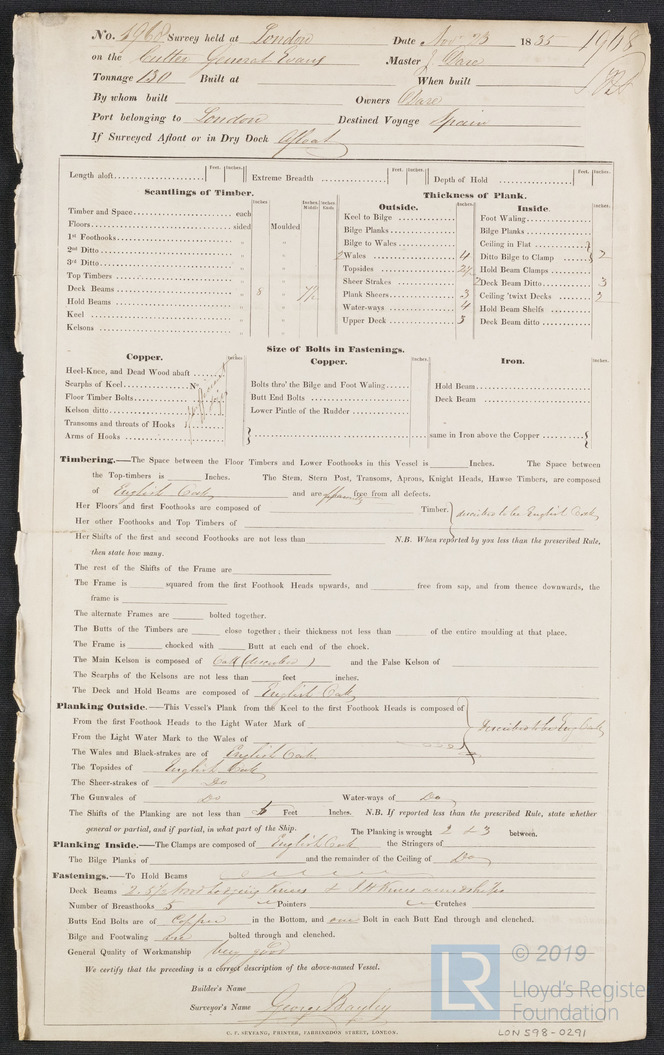 No. 1968 Survey held at London Date Nov 23 1835 1968
on the Cutter General Evans Master J Clare
Tonnage 130 Built at When built
By whom built Owners Clare
Port belonging to London Destined Voyage Spain
If Surveyed Afloat or in Dry Dock Afloat
Length aloft Feet. Inches. Extreme Breadth Feet. Inches. Depth of Hold Feet. Inches.
Scantlings of Timber.
Inches Inches Middle Inches Ends
Timber and Space each
Floors sided Moulded
1st Foothooks „ „
2nd Ditto „ „
3rd Ditto „ „
Top Timbers „ „
Deck Beams „ 8 „ 7½
Hold Beams „ „
Keel „ „
Kelsons „ „
Thickness of Plank.
Outside. Inches.
Keel to Bilge
Bilge Planks
Bilge to Wales
Wales 4
Topsides 2½
Sheer Strakes
Plank Sheers 3
Water-ways 4
Upper Deck 3
Inside. Inches.
Foot Waling
Bilge Planks
Ceiling in Flat
Ditto Bilge to Clamp 2
Hold Beam Clamps
Deck Beam Ditto 3
Ceiling 'twixt Decks 2
Hold Beam Shelfs
Deck Beam ditto
Size of Bolts in Fastenings.
Copper. Inches
Heel-Knee, and Dead Wood abaft
Scarphs of Keel No.
Floor Timber Bolts
Kelson ditto
Transoms and throats of Hooks
Arms of Hooks
Copper. Inches.
Bolts thro' the Bilge and Foot Waling
Butt End Bolts
Lower Pintle of the Rudder
Iron. Inches.
Hold Beam
Deck Beam
same in Iron above the Copper
Timbering.—The Space between the Floor Timbers and Lower Foothooks in this Vessel is Inches. The Space between
the Top-timbers is Inches. The Stem, Stern Post, Transoms, Aprons, Knight Heads, Hawse Timbers, are composed
of English Oak and are free from all defects.
Her Floors and first Foothooks are composed of Timber. described to be English Oak
Her other Foothooks and Top Timbers of
Her Shifts of the first and second Foothooks are not less than N.B. When reported by you less than the prescribed Rule,
then state how many.
The rest of the Shifts of the Frame are
The Frame is squared from the first Foothook Heads upwards, and free from sap, and from thence downwards, the
frame is
The alternate Frames are bolted together.
The Butts of the Timbers are close together; their thickness not less than of the entire moulding at that place.
The Frame is chocked with Butt at each end of the chock.
The Main Kelson is composed of Oak (described) and the False Kelson of
The Scarphs of the Kelsons are not less than feet inches.
The Deck and Hold Beams are composed of English Oak
Planking Outside.—This Vessel's Plank from the Keel to the first Foothook Heads is composed of
From the first Foothook Heads to the Light Water Mark of described to be Eng Oak
From the Light Water Mark to the Wales of
The Wales and Black-strakes are of English Oak
The Topsides of English Oak
The Sheer-strakes of Do
The Gunwales of Do Water-ways of Do
The Shifts of the Planking are not less than 5 Feet Inches. N.B. If reported less than the prescribed Rule, state whether
general or partial, and if partial, in what part of the Ship. The Planking is wrought 2 & 3 between.
Planking Inside.—The Clamps are composed of English Oak the Stringers of
The Bilge Planks of and the remainder of the Ceiling of Do
Fastenings.—To Hold Beams
Deck Beams Lodging Knees & Knees amidships
Number of Breasthooks 5 Pointers Crutches
Butts End Bolts are of Copper in the Bottom, and one Bolt in each Butt End through and clenched.
Bilge and Footwaling are bolted through and clenched.
General Quality of Workmanship Very good
We certify that the preceding is a correct description of the above-named Vessel.
Builder's Name
Surveyor's Name George Bayley
C. F. SEYFANG, PRINTER, FARRINGDON STREET, LONDON.
LR © 2019
Lloyd's Registe
Foundation
LON598-0291